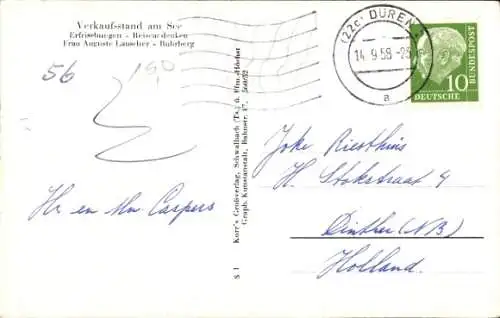 Verkaufsstand am See
Erfrischungen - Reiseandenken
Frau Auguste Lauscher - Buhrberg
56
150
Hr en Mw Caspers
S 1
Karr's Großverlag, Schwalbach (Ts.) & Ffm.-Höchst
Graph. Kunstanstalt, Bahnstr. 17,
(22c) DÜREN
14.9.58
a
10
DEUTSCHE
BUNDESPOST
Joke Riesthuis
H. Stokstraat 9
Dinther (NB)
Holland.